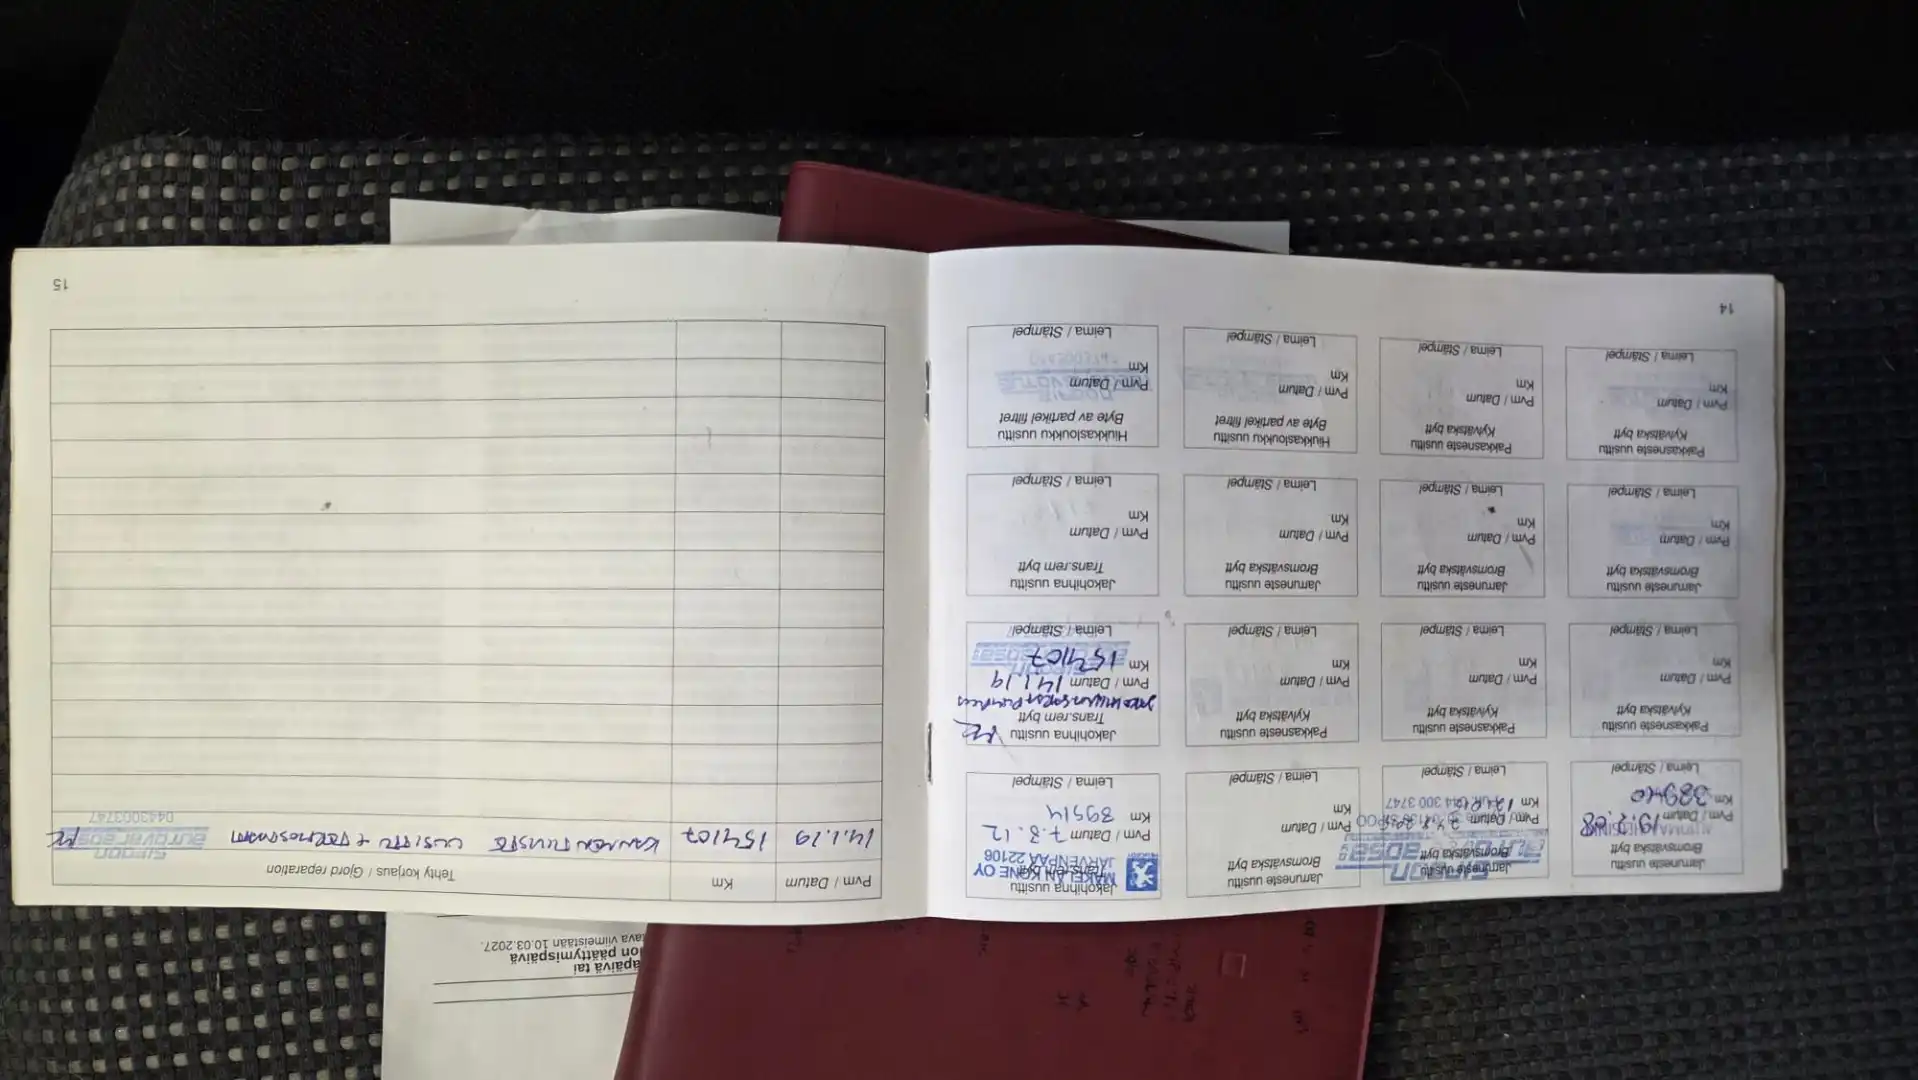 14
Jarruneste uusittu
Bromsvätska bytt
Pvm / Datum 19.2.08
Km 38940
Leima / Stämpel
Jarruneste uusittu
Bromsvätska bytt
SIPOON
autovaraosa
Pvm / Datum
Km
044 300 3747
Leima / Stämpel
Jarruneste uusittu
Bromsvätska bytt
Pvm / Datum
Km
Leima / Stämpel
Jakohihna uusittu
Trans.rem bytt
MÄKELÄN KONE OY
JÄRVENPÄÄ 22106
Pvm / Datum 7.3.12
Km 89514
Leima / Stämpel
Pakkasneste uusittu
Kylvätska bytt
Pvm / Datum
Km
Leima / Stämpel
Pakkasneste uusittu
Kylvätska bytt
Pvm / Datum
Km
Leima / Stämpel
Pakkasneste uusittu
Kylvätska bytt
Pvm / Datum
Km
Leima / Stämpel
Jakohihna uusittu
Trans.rem bytt
Pvm / Datum 14.1.19
Km 154107
SIPOON
autovaraosa
Leima / Stämpel
Jarruneste uusittu
Bromsvätska bytt
Pvm / Datum
Km
Leima / Stämpel
Jarruneste uusittu
Bromsvätska bytt
Pvm / Datum
Km
Leima / Stämpel
Jarruneste uusittu
Bromsvätska bytt
Pvm / Datum
Km
Leima / Stämpel
Jakohihna uusittu
Trans.rem bytt
Pvm / Datum
Km
Leima / Stämpel
Pakkasneste uusittu
Kylvätska bytt
Pvm / Datum
Km
Leima / Stämpel
Pakkasneste uusittu
Kylvätska bytt
Pvm / Datum
Km
Leima / Stämpel
Hiukkasloukku uusittu
Byte av partikel filtret
Pvm / Datum
Km
Leima / Stämpel
Hiukkasloukku uusittu
Byte av partikel filtret
Pvm / Datum
Km
Leima / Stämpel
15
Pvm / Datum
Km
Tehty korjaus / Gjord reparation
14.1.19 154107 KANNEN TIIVISTE UUSITTU + TERMOSTAATTI
SIPOON
autovaraosa
0443003747
apäivä tai
on päättymispäivä
tava viimeistään 10.03.2027.